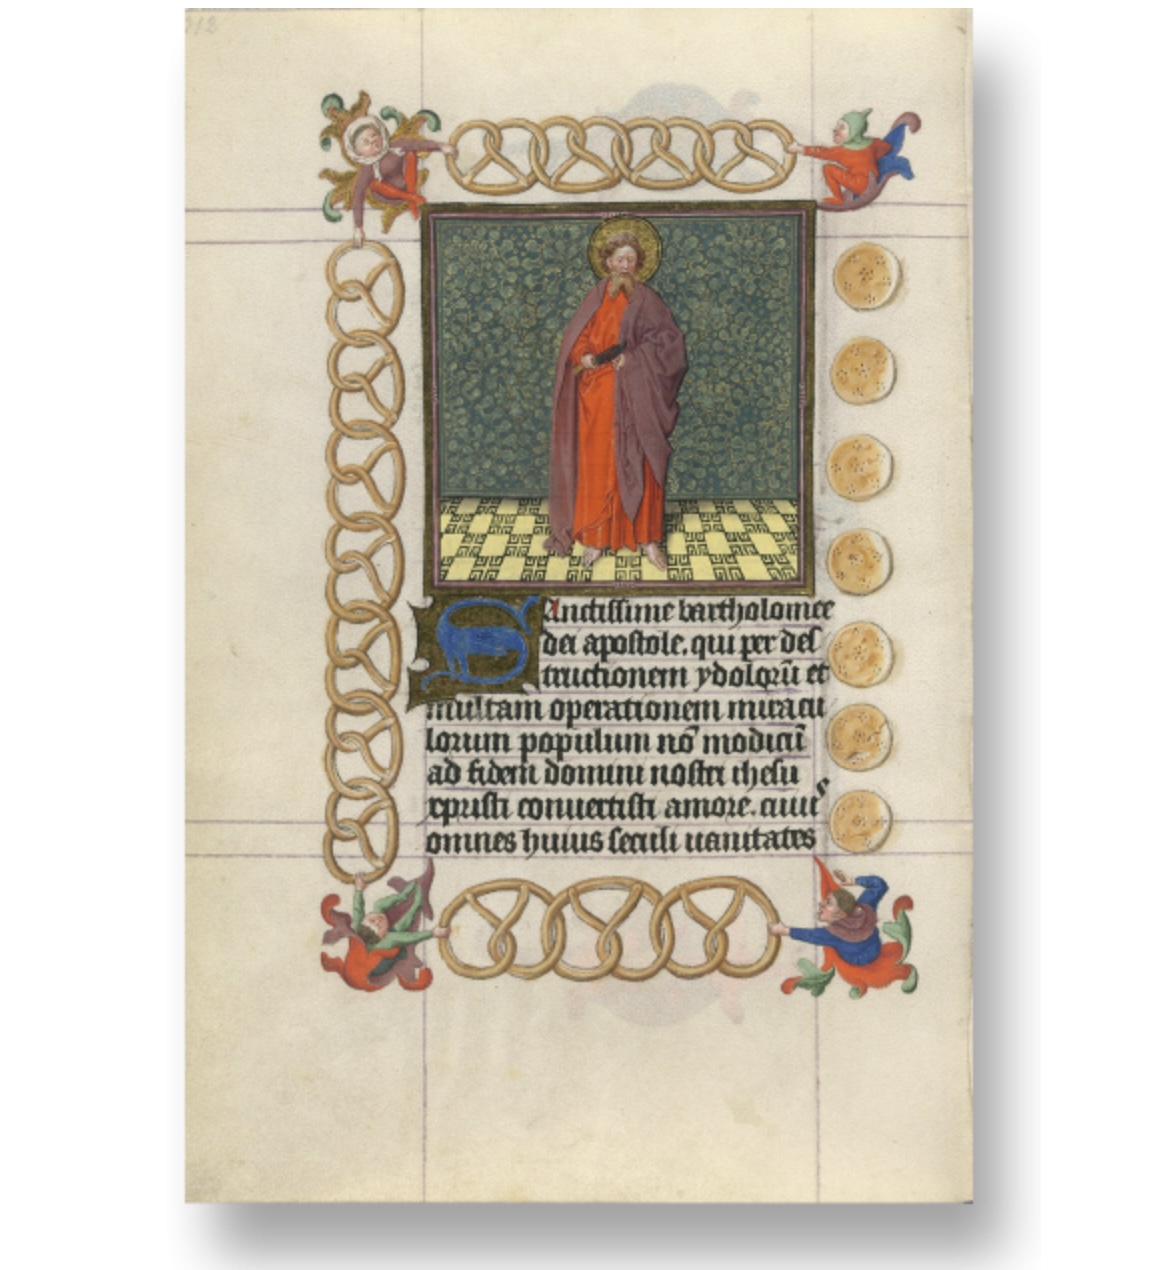 312
Sanctissime bartholomee
dei apostole. qui per des
tructionem ydolorū et
multam operationem miracu
lorum populum nō modicū
ad fidem domini nostri ihesu
xpristi conuertisti amore. cuius
omnes huius seculi uanitates